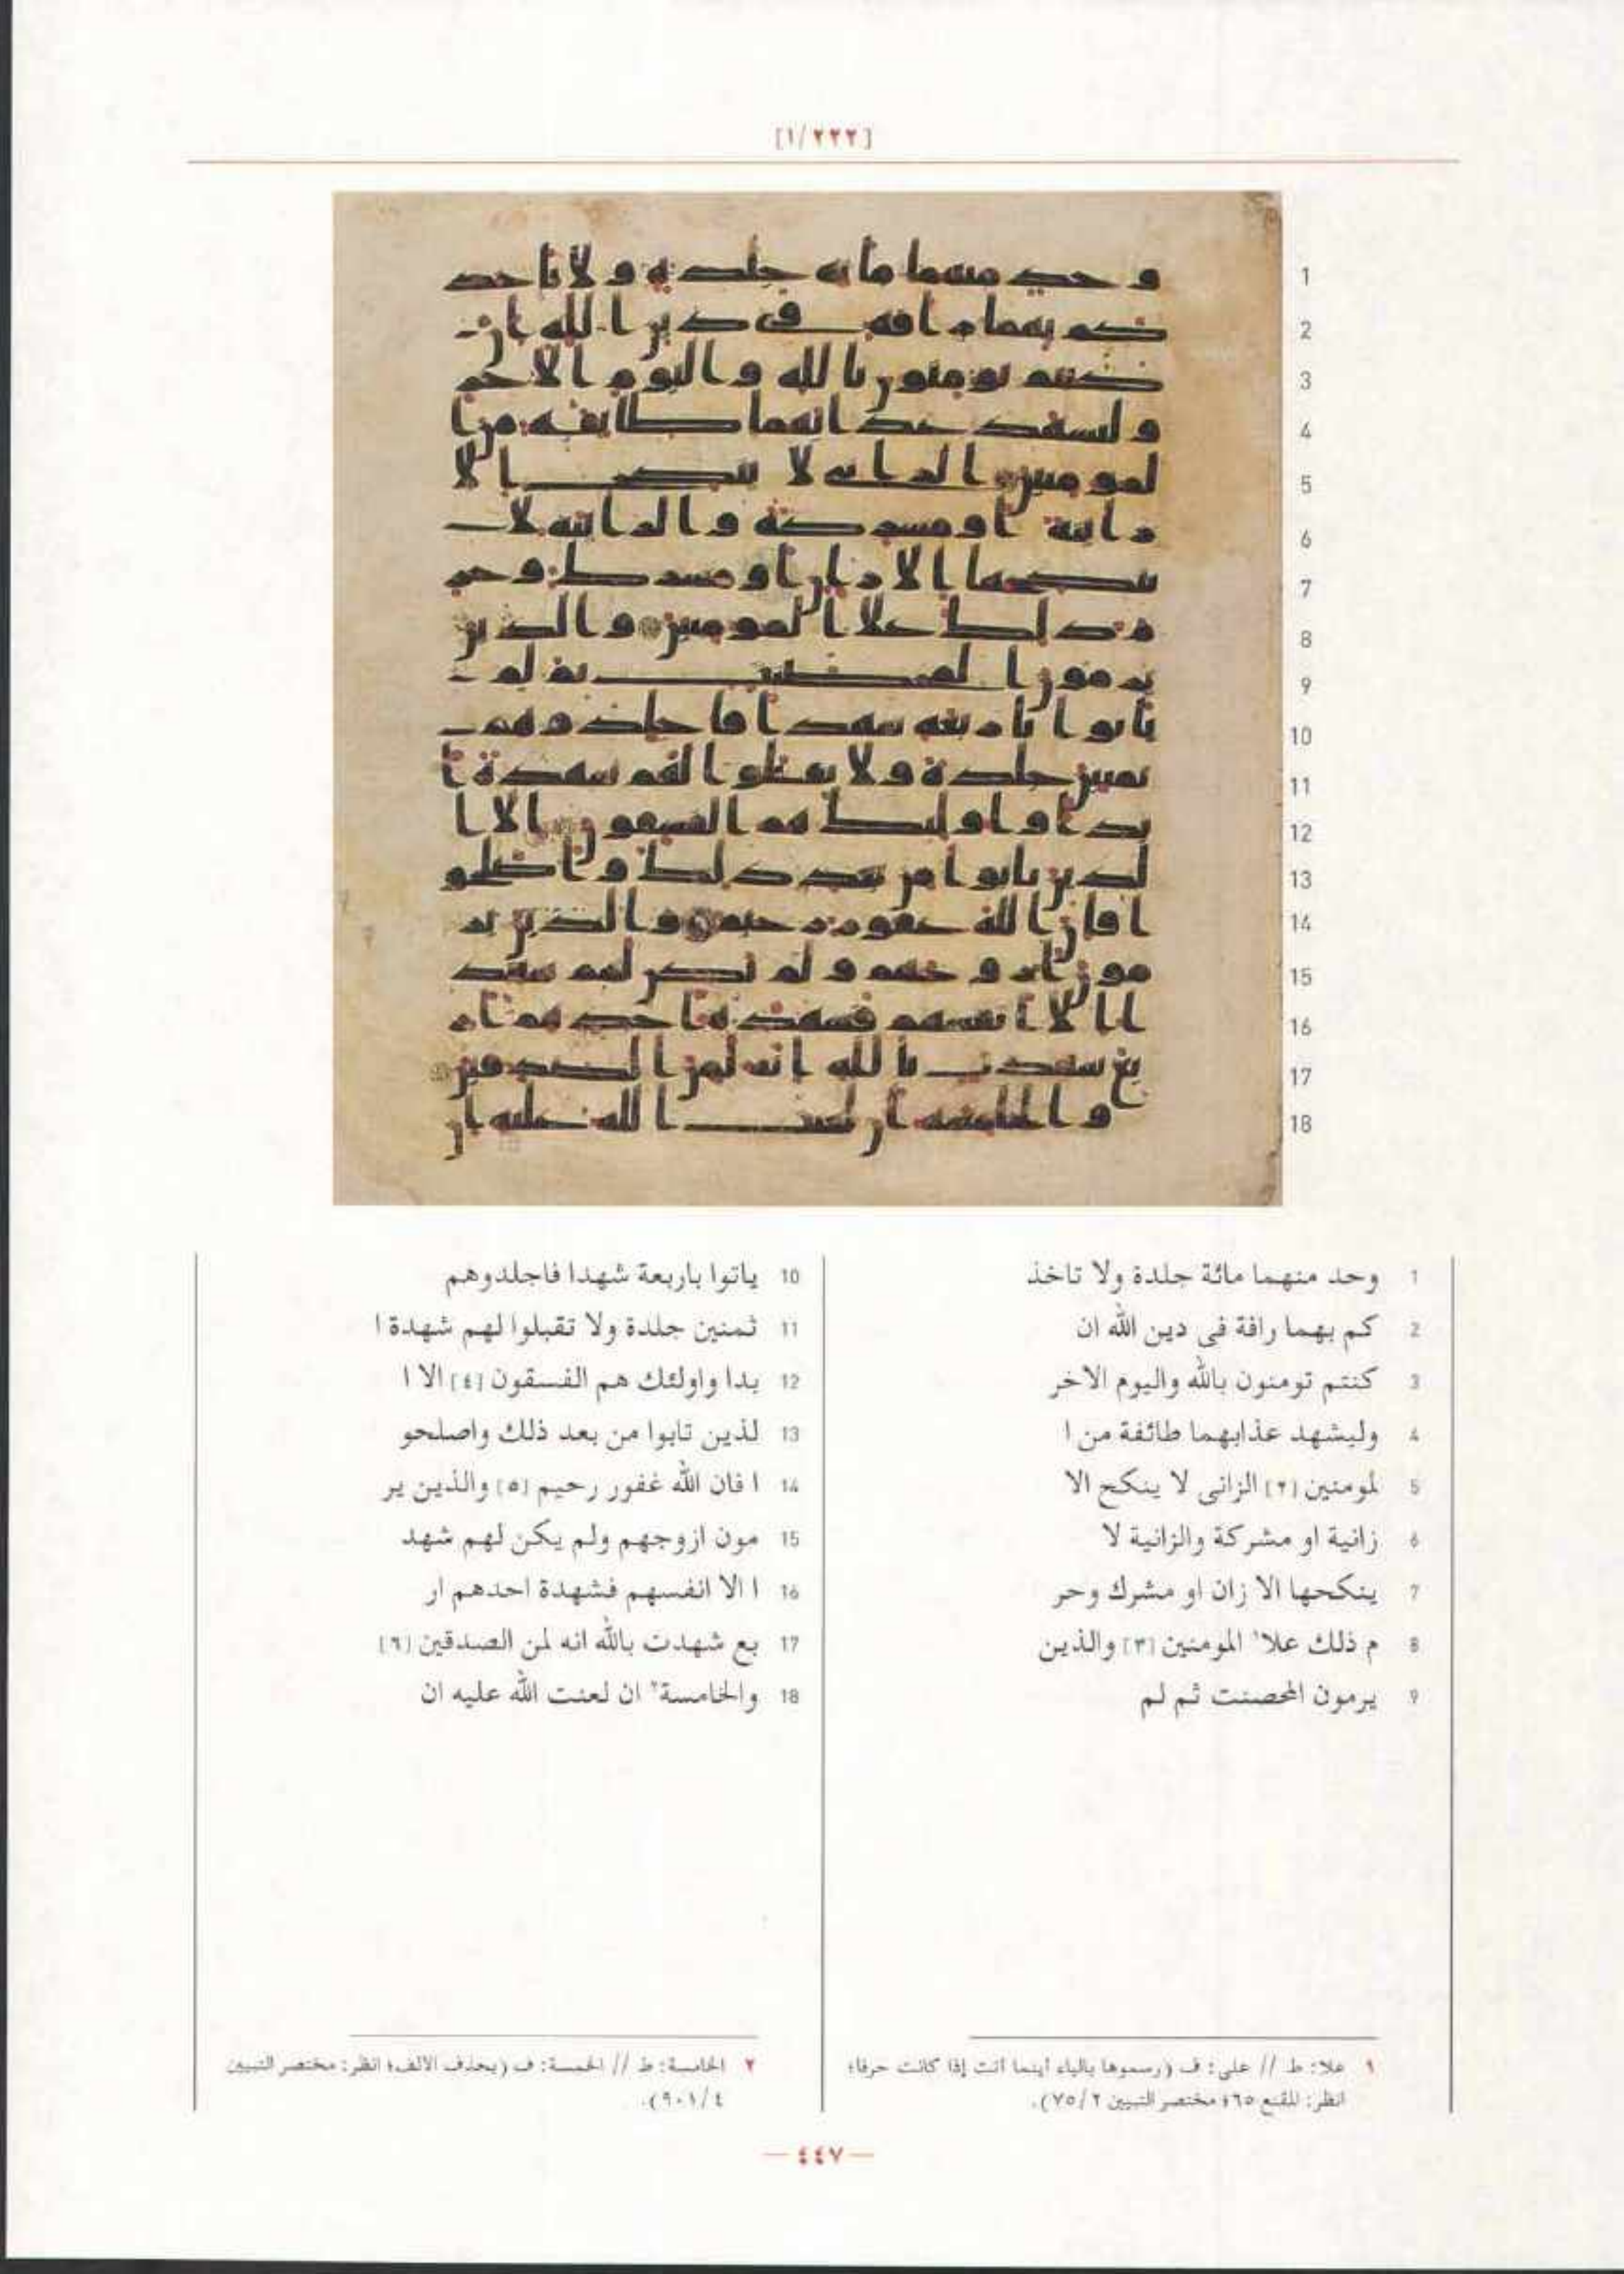 [١/٢٢٢]
1 وحد منهما مائة جلدة ولا تاخذ
2 كم بهما رافة فى دين الله ان
3 كنتم تومنون بالله واليوم الاخر
4 وليشهد عذابهما طائفة من ا
5 لمومنين [٢] الزانى لا ينكح الا
6 زانية او مشركة والزانية لا
7 ينكحها الا زان او مشرك وحر
8 م ذلك علا١ المومنين [٣] والذين
9 يرمون المحصنت ثم لم
10 ياتوا باربعة شهدا فاجلدوهم
11 ثمنين جلدة ولا تقبلوا لهم شهدة ا
12 بدا واولئك هم الفسقون [٤] الا ا
13 لذين تابوا من بعد ذلك واصلحو
14 ا فان الله غفور رحيم [٥] والذين ير
15 مون ازوجهم ولم يكن لهم شهد
16 ا الا انفسهم فشهدة احدهم ار
17 بع شهدت بالله انه لمن الصدقين [٦]
18 والخامسة٢ ان لعنت الله عليه ان
١ علا: ط // على: ف (رسموها بالياء أينما أتت إذا كانت حرفا؛
انظر: المقنع ٦٥؛ مختصر التبيين ٧٥/٢).
٢ الخامسة: ط // الخمسة: ف (بحذف الالف؛ انظر: مختصر التبيين
٩٠١/٤).
— ٤٤٧ —